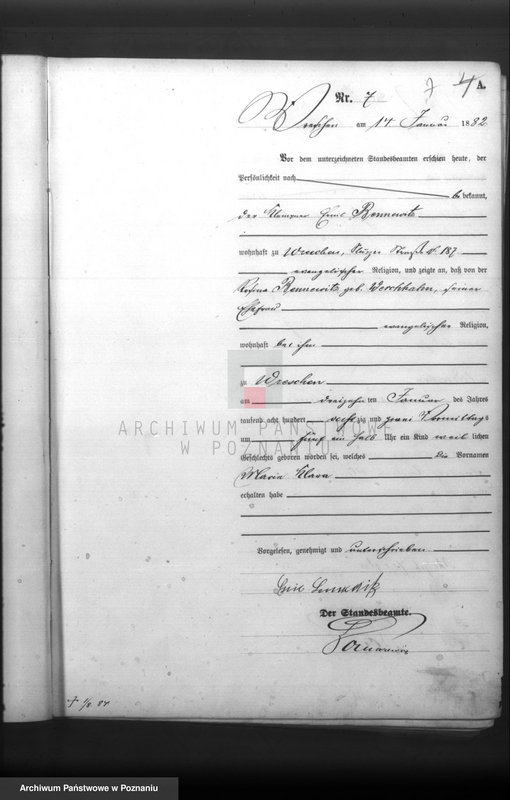 7 4 A.
Nr. 7
Wreschen am 14 Januar 1882
Vor dem unterzeichneten Standesbeamten erschien heute, der
Persönlichkeit nach
bekannt,
der Klempner Emil Bennewitz
wohnhaft zu Wreschen, Straße N. 187
evangelischer Religion, und zeigte an, daß von der
Rosina Bennewitz, geb. Werchhahn, seiner
Ehefrau
evangelischer Religion,
wohnhaft bei ihm
zu Wreschen
am dreizehnten Januar des Jahres
tausend acht hundert achtzig und zwei Vormittags
um fünf ein halb Uhr ein Kind weiblichen
Geschlechts geboren worden sei, welches die Vornamen
Maria Klara
erhalten habe
Vorgelesen, genehmigt und unterschrieben
Der Standesbeamte.
ARCHIWUM PAŃSTWOWE
W POZNANIU
Archiwum Państwowe w Poznaniu